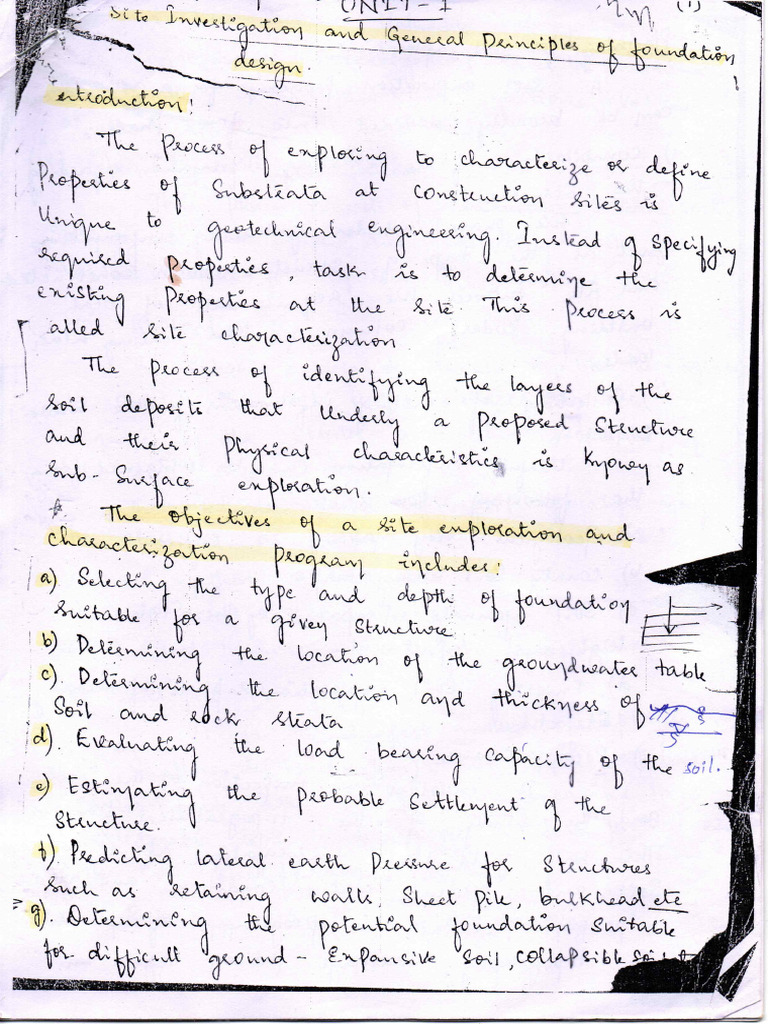 UNIT-1 (1)
Site Investigation and General Principles of foundation
design.
ntroduction:
The Process of exploring to characterize or define
Properties of Substrata at Construction sites is
Unique to geotechnical engineering. Instead of specifying
required properties, task is to determine the
existing Properties at the site This Process is
alled site characterization.
The process of identifying the layers of the
soil deposits that Underly a proposed Structure
and their Physical characteristics is Known as
Sub-Surface exploration.
The objectives of a site exploration and
characterization program includes:
a) Selecting the type and depth of foundation
Suitable for a given Structure
b) Determining the location of the groundwater table
c) Determining the location and thickness of
Soil and rock strata
d) Evaluating the load bearing capacity of the soil.
e) Estimating the Probable Settlement of the
Structure.
f) Predicting lateral earth Pressure for Structures
such as retaining walls, Sheet pile, bulkhead etc
g) Determining the potential foundation Suitable
for difficult ground - Expansive soil, collapsible soil